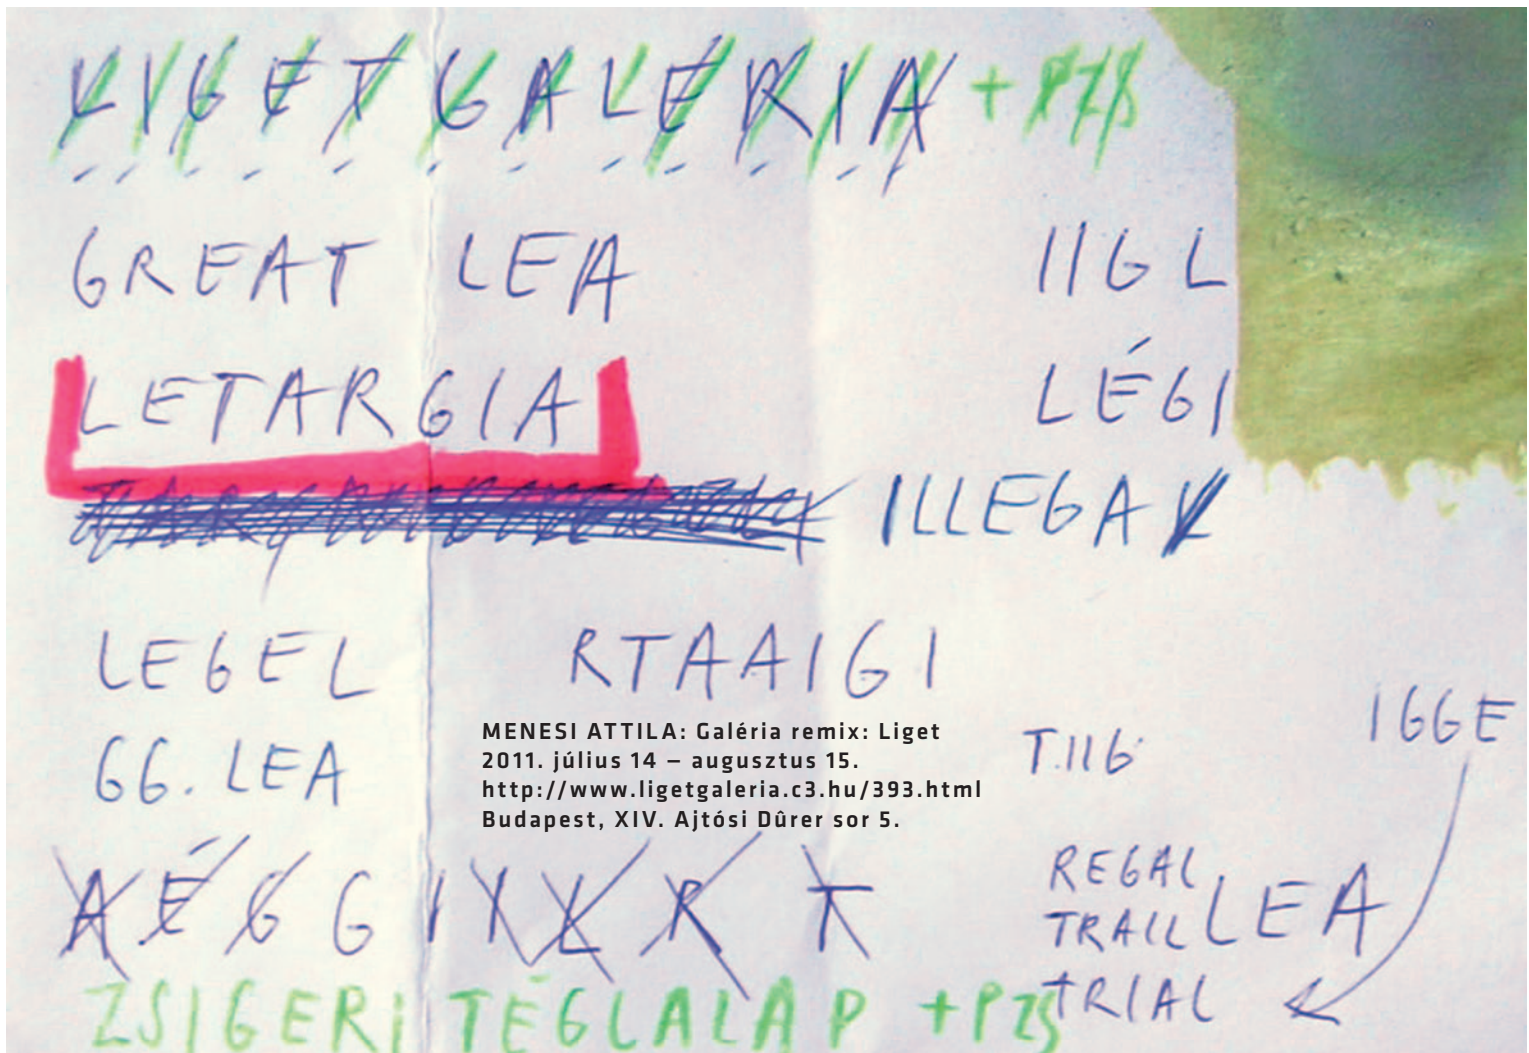 LIGET GALÉRIA + PZS
GREAT LEA
IIGL
LETARGIA
LÉGI
ILLEGAL
LEGEL
RTAAIGI
IGGE
MENESI ATTILA: Galéria remix: Liget
2011. július 14 – augusztus 15.
http://www.ligetgaleria.c3.hu/393.html
Budapest, XIV. Ajtósi Dûrer sor 5.
T.IIG
GG. LEA
A É G G I I L R T
REGAL
TRAIL LEA
TRIAL
ZSIGERI TÉGLALAP + PZS